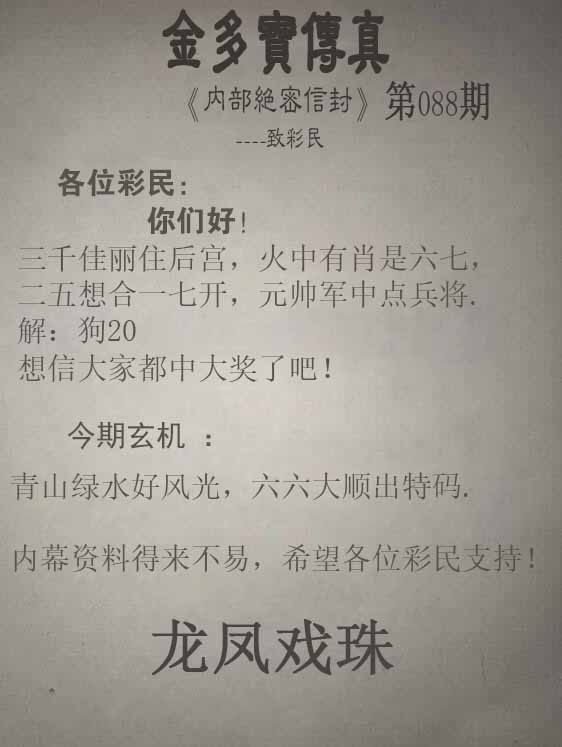 金多寶傳真
《内部絶密信封》第088期
----致彩民
各位彩民:
你们好!
三千佳丽住后宫，火中有肖是六七，
二五想合一七开，元帅军中点兵将.
解：狗20
想信大家都中大奖了吧！
今期玄机 ：
青山绿水好风光，六六大顺出特码.
内幕资料得来不易，希望各位彩民支持！
龙凤戏珠